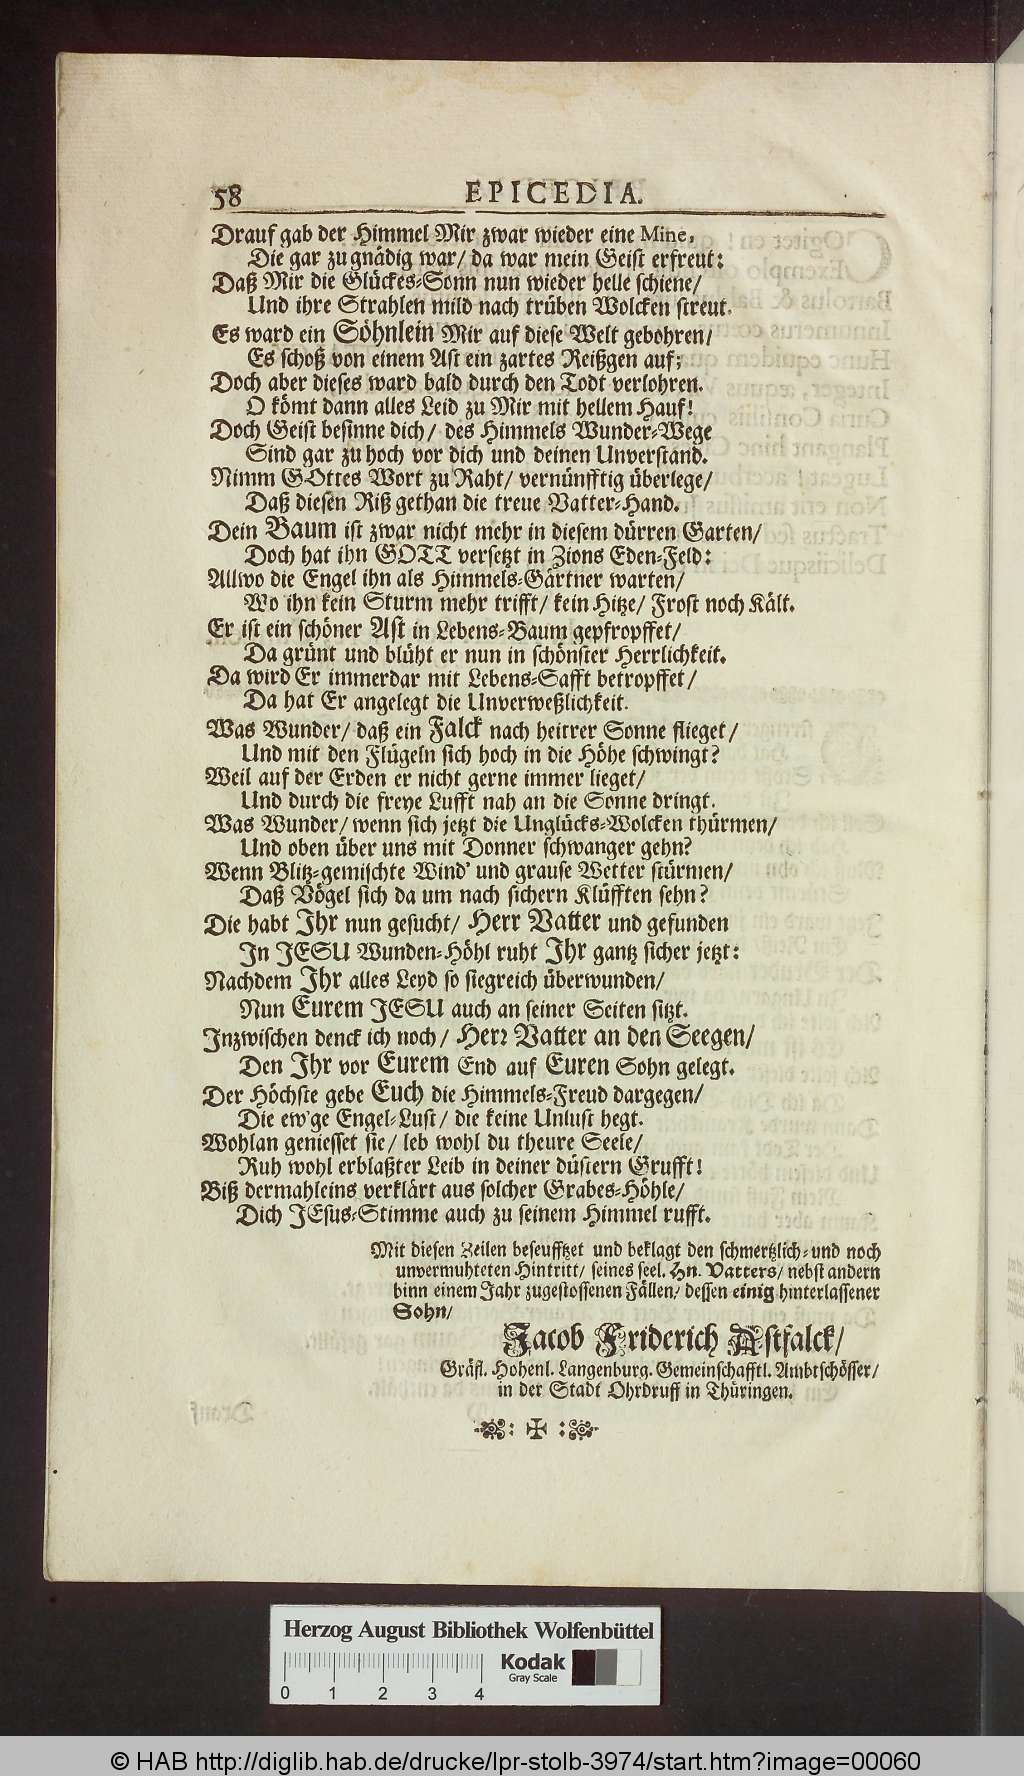 58 EPICEDIA.
Drauf gab der Himmel Mir zwar wieder eine Mine,
Die gar zu gnädig war/ da war mein Geist erfreut:
Daß Mir die Glückes-Sonn nun wieder helle schiene/
Und ihre Strahlen mild nach trüben Wolcken streut.
Es ward ein Söhnlein Mir auf diese Welt gebohren/
Es schoß von einem Ast ein zartes Reißgen auf;
Doch aber dieses ward bald durch den Todt verlohren.
O kömt dann alles Leid zu Mir mit hellem Hauf!
Doch Geist besinne dich/ des Himmels Wunder-Wege
Sind gar zu hoch vor dich und deinen Unverstand.
Nimm GOttes Wort zu Raht/ vernünfftig überlege/
Daß diesen Riß gethan die treue Vatter-Hand.
Dein Baum ist zwar nicht mehr in diesem dürren Garten/
Doch hat ihn GOTT versetzt in Zions Eden-Feld:
Allwo die Engel ihn als Himmels-Gärtner warten/
Wo ihn kein Sturm mehr trifft/ kein Hitze/ Frost noch Kält.
Er ist ein schöner Ast in Lebens-Baum gepfropffet/
Da grünt und blüht er nun in schönster Herrlichkeit.
Da wird Er immerdar mit Lebens-Safft betropffet/
Da hat Er angelegt die Unverweßlichkeit.
Was Wunder/ daß ein Falck nach heitrer Sonne flieget/
Und mit den Flügeln sich hoch in die Höhe schwingt?
Weil auf der Erden er nicht gerne immer lieget/
Und durch die freye Lufft nah an die Sonne dringt.
Was Wunder/ wenn sich jetzt die Unglücks-Wolcken thürmen/
Und oben über uns mit Donner schwanger gehn?
Wenn Blitz-gemischte Wind' und grause Wetter stürmen/
Daß Vögel sich da um nach sichern Klüfften sehn?
Die habt Ihr nun gesucht/ Herr Vatter und gefunden
In JESU Wunden-Höhl ruht Ihr gantz sicher jetzt:
Nachdem Ihr alles Leyd so siegreich überwunden/
Nun Eurem JESU auch an seiner Seiten sitzt.
Inzwischen denck ich noch/ Herr Vatter an den Seegen/
Den Ihr vor Eurem End auf Euren Sohn gelegt.
Der Höchste gebe Euch die Himmels-Freud dargegen/
Die ew'ge Engel-Lust/ die keine Unlust hegt.
Wohlan geniesset sie/ leb wohl du theure Seele/
Ruh wohl erblaßter Leib in deiner düstern Grufft!
Biß dermahleins verklärt aus solcher Grabes-Höhle/
Dich JEsus-Stimme auch zu seinem Himmel rufft.
Mit diesen Zeilen beseufftzet und beklagt den schmertzlich- und noch
unvermuhteten Hintritt/ seines seel. Hn. Vatters/ nebst andern
binn einem Jahr zugestossenen Fällen/ dessen einig hinterlassener
Sohn/
Jacob Friderich Astfalck/
Gräfl. Hohenl. Langenburg. Gemeinschafftl. Ambtschösser/
in der Stadt Ohrdruff in Thüringen.
Herzog August Bibliothek Wolfenbüttel
Kodak
Gray Scale
0 1 2 3 4
© HAB http://diglib.hab.de/drucke/lpr-stolb-3974/start.htm?image=00060